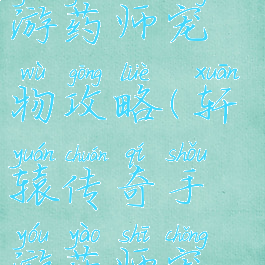 游药师宠
wù gōng lüè xuān
物攻略(轩
yuán chuán qí shǒu
辕传奇手
yóu yào shī chǒng
游药师宠